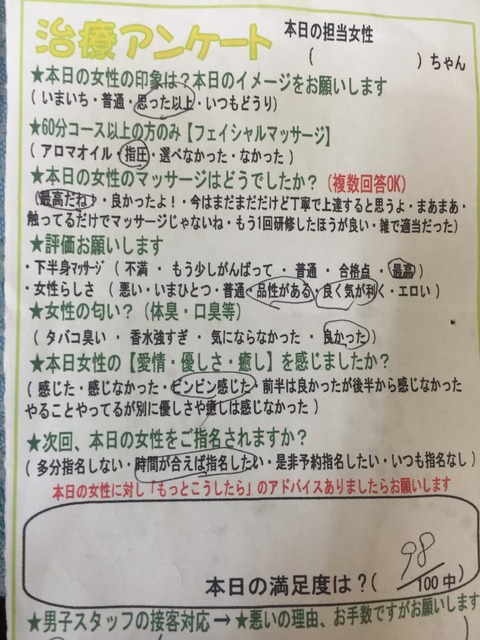 治療アンケート
本日の担当女性
( )ちゃん
★本日の女性の印象は?本日のイメージをお願いします
( いまいち・普通・思った以上・いつもどうり )
★60分コース以上の方のみ【フェイシャルマッサージ】
( アロマオイル・指圧・選べなかった・なかった )
★本日の女性のマッサージはどうでしたか? (複数回答OK)
(最高だね・良かったよ!・今はまだまだだけど丁寧で上達すると思うよ・まあまあ・
触ってるだけでマッサージじゃないね・もう1回研修したほうが良い・雑で適当だった)
★評価お願いします
・下半身マッサージ ( 不満 ・ もう少しがんばって ・ 普通 ・ 合格点 ・ 最高 )
・女性らしさ ( 悪い・いまひとつ・普通・品性がある・良く気が利く・エロい )
★女性の匂い? (体臭・口臭等)
( タバコ臭い ・ 香水強すぎ ・ 気にならなかった ・ 良かった )
★本日女性の【愛情・優しさ・癒し】を感じましたか?
( 感じた・感じなかった・ビンビン感じた・前半は良かったが後半から感じなかった
やることやってるが別に優しさや癒しは感じなかった )
★次回、本日の女性をご指名されますか?
( 多分指名しない・時間が合えば指名したい・是非予約指名したい・いつも指名なし )
本日の女性に対し「もっとこうしたら」のアドバイスありましたらお願いします
本日の満足度は?( 98/100中)
★男子スタッフの接客対応 → ★悪いの理由、お手数ですがお願いします